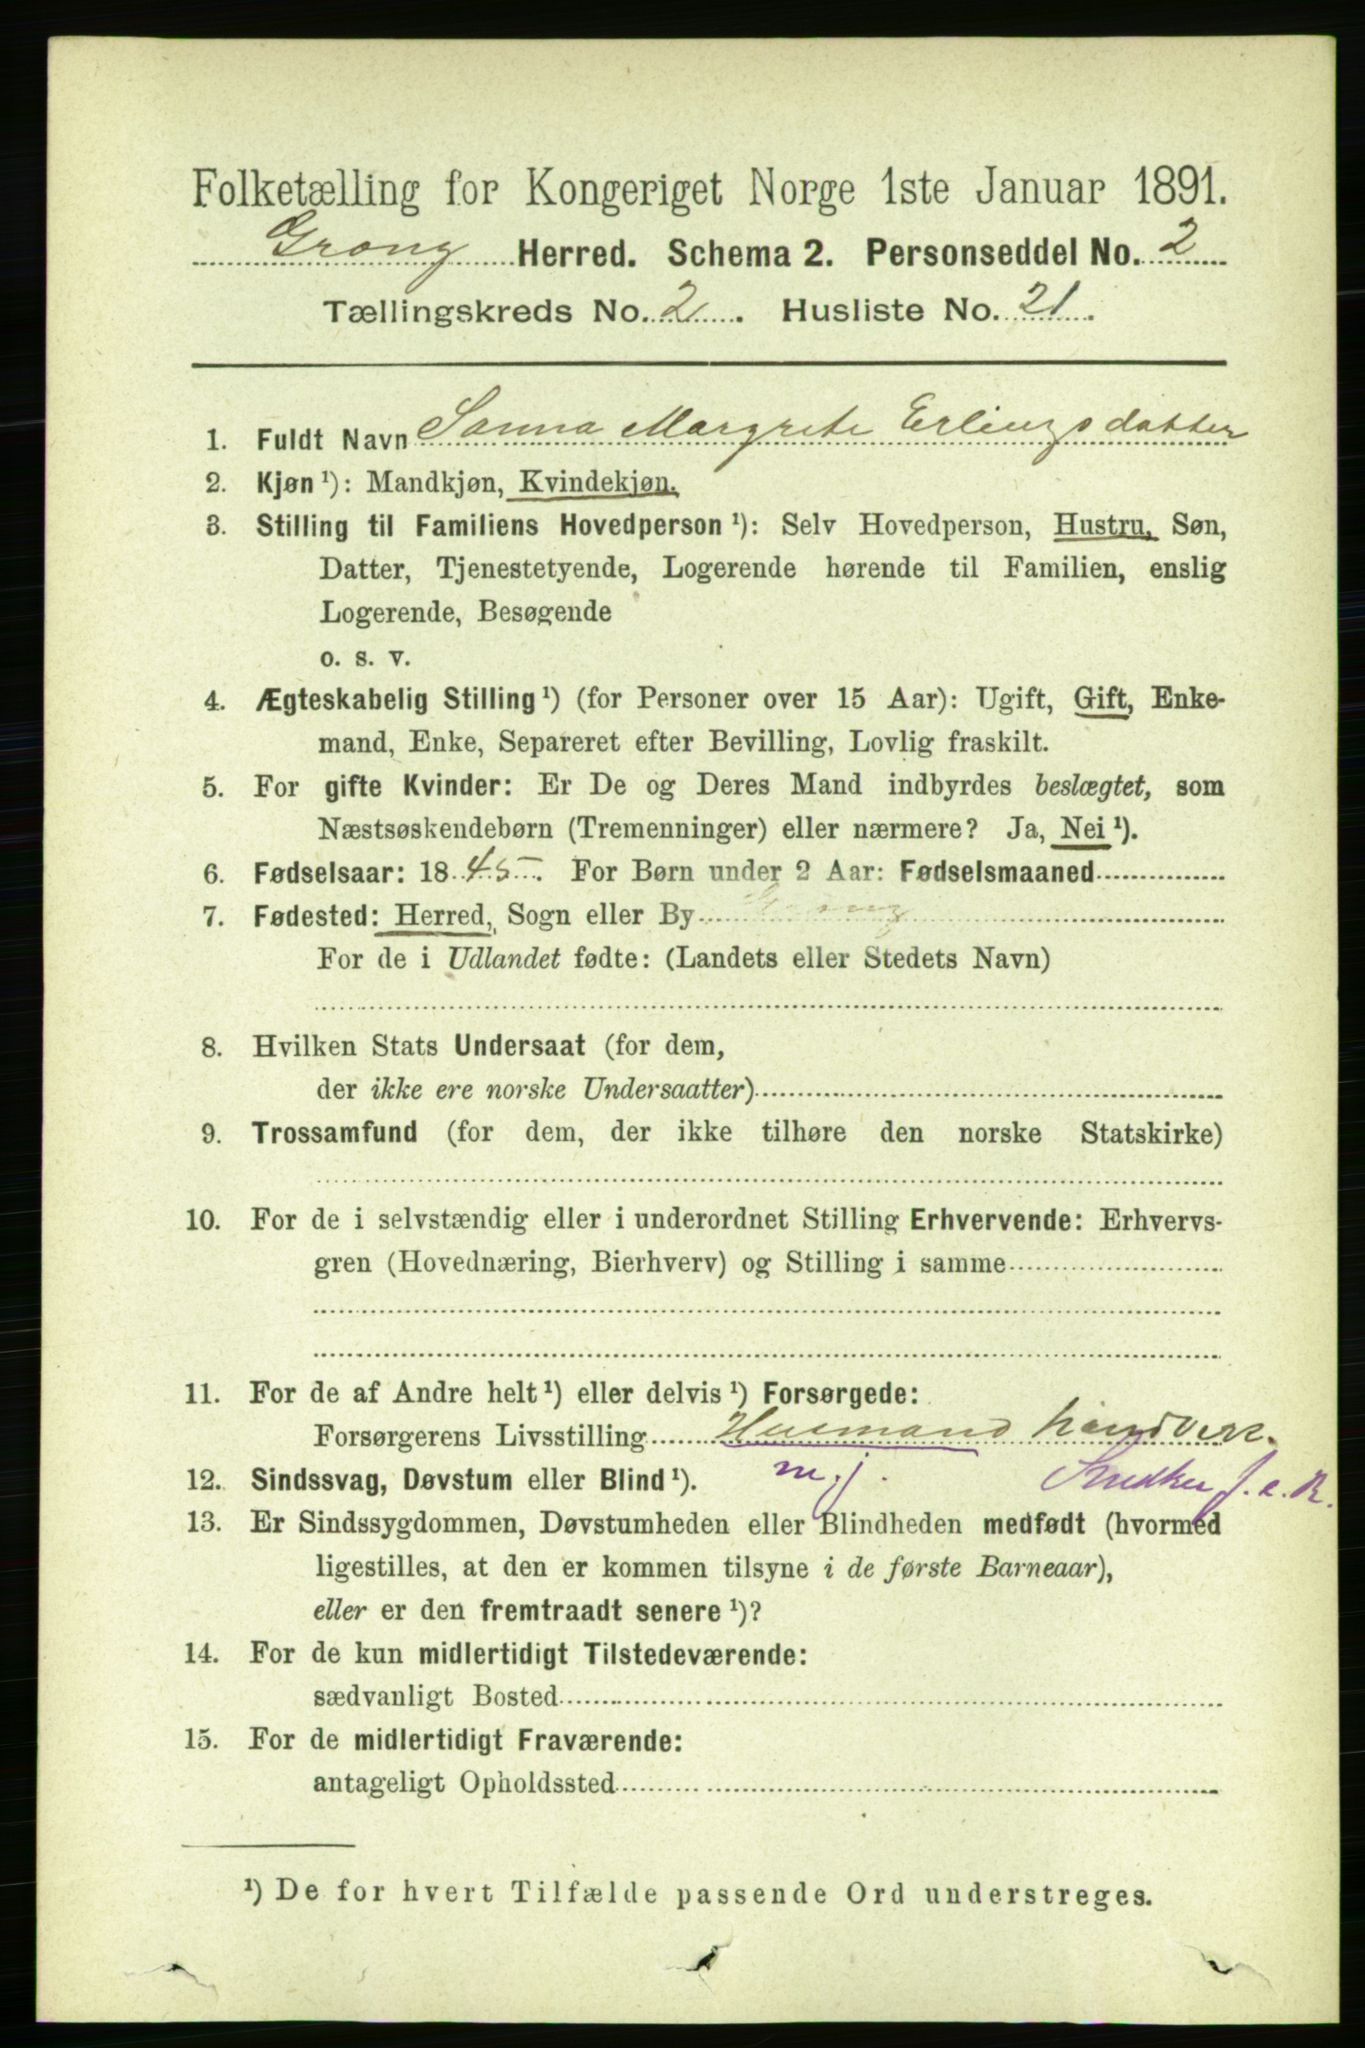 Folketælling for Kongeriget Norge 1ste Januar 1891.
Grong Herred. Schema 2. Personseddel No. 2
Tællingskreds No. 2. Husliste No. 21.
1. Fuldt Navn Sanna Margrete Erlingsdatter
2. Kjøn ¹): Mandkjøn, Kvindekjøn.
3. Stilling til Familiens Hovedperson ¹): Selv Hovedperson, Hustru, Søn,
Datter, Tjenestetyende, Logerende hørende til Familien, enslig
Logerende, Besøgende
o. s. v.
4. Ægteskabelig Stilling ¹) (for Personer over 15 Aar): Ugift, Gift, Enke-
mand, Enke, Separeret efter Bevilling, Lovlig fraskilt.
5. For gifte Kvinder: Er De og Deres Mand indbyrdes beslægtet, som
Næstsøskendebørn (Tremenninger) eller nærmere? Ja, Nei ¹).
6. Fødselsaar: 1845. For Børn under 2 Aar: Fødselsmaaned
7. Fødested: Herred, Sogn eller By Grong
For de i Udlandet fødte: (Landets eller Stedets Navn)
8. Hvilken Stats Undersaat (for dem,
der ikke ere norske Undersaatter)
9. Trossamfund (for dem, der ikke tilhøre den norske Statskirke)
10. For de i selvstændig eller i underordnet Stilling Erhvervende: Erhvervs-
gren (Hovednæring, Bierhverv) og Stilling i samme
11. For de af Andre helt ¹) eller delvis ¹) Forsørgede:
Forsørgerens Livsstilling Husmand handverk.
12. Sindssvag, Døvstum eller Blind ¹). m. j. Snedker f. e. R.
13. Er Sindssygdommen, Døvstumheden eller Blindheden medfødt (hvormed
ligestilles, at den er kommen tilsyne i de første Barneaar),
eller er den fremtraadt senere ¹)?
14. For de kun midlertidigt Tilstedeværende:
sædvanligt Bosted
15. For de midlertidigt Fraværende:
antageligt Opholdssted
¹) De for hvert Tilfælde passende Ord understreges.